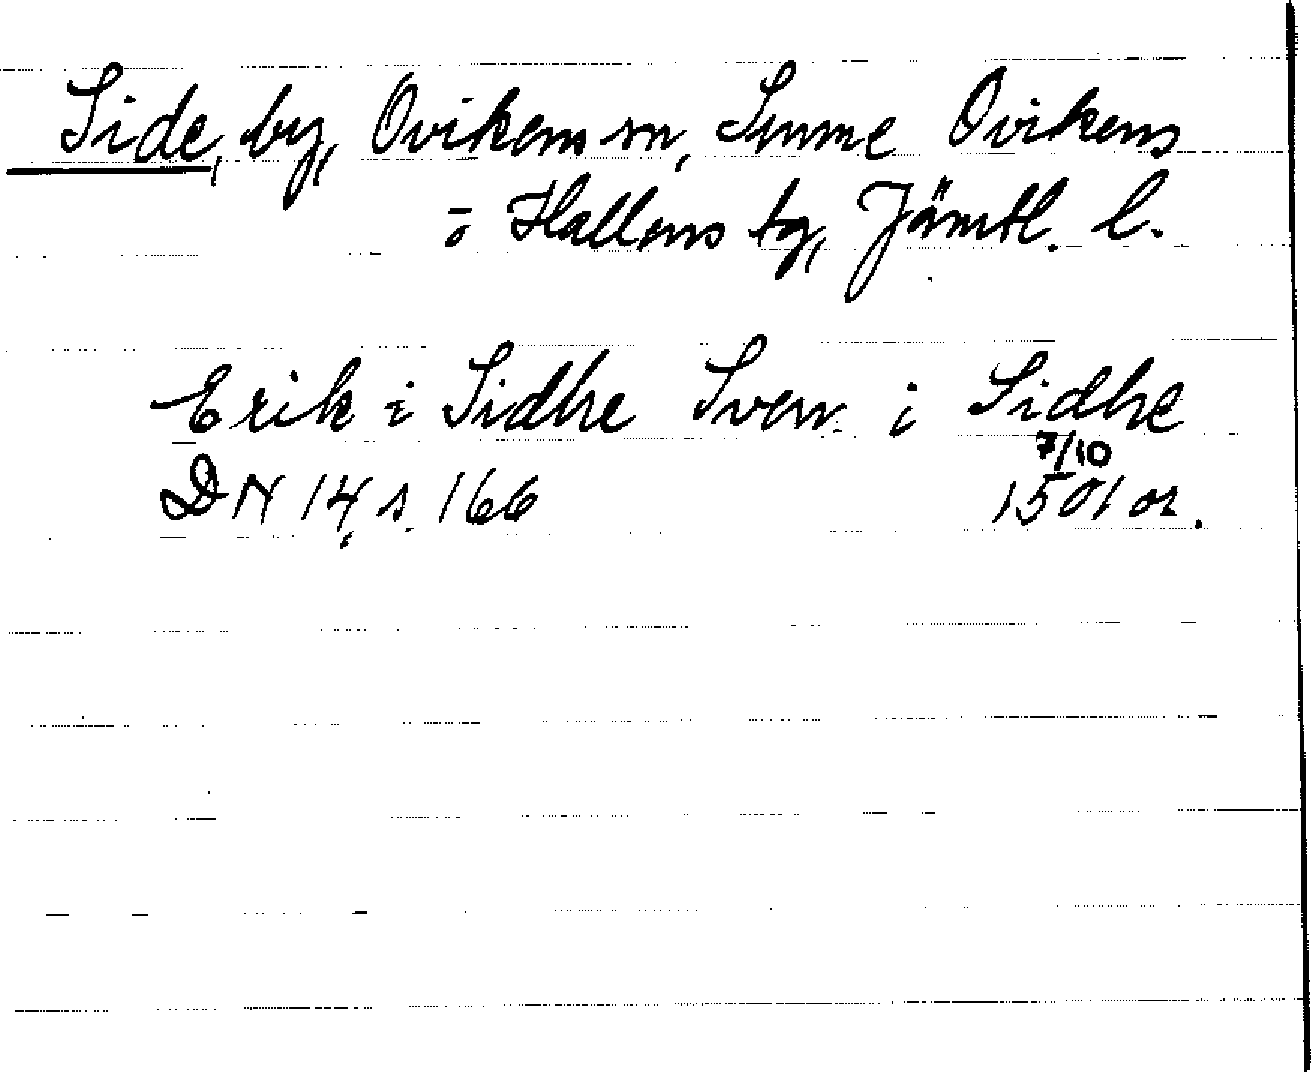 Side, by, Ovikens sn, Sunne Ovikens
o Hallens tg, Jämtl. l.
Erik i Sidhe Sven i Sidhe
7/10
DN 14, s. 166 1501 or.